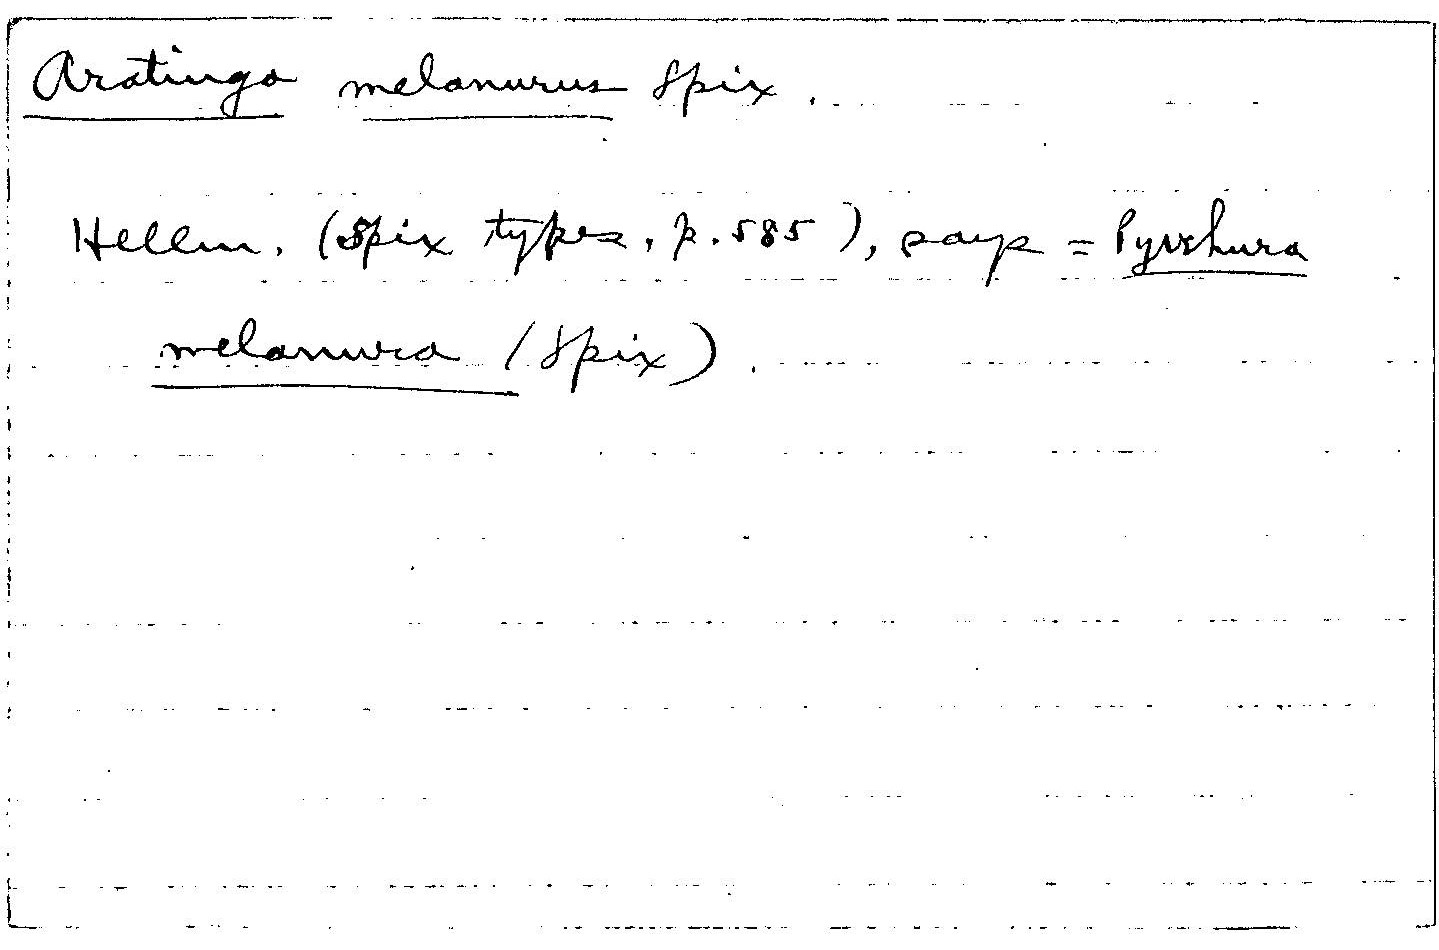 Aratinga melanurus Spix.
Hellm. (Spix types, p. 585), says = Pyrrhura
melanura (Spix).